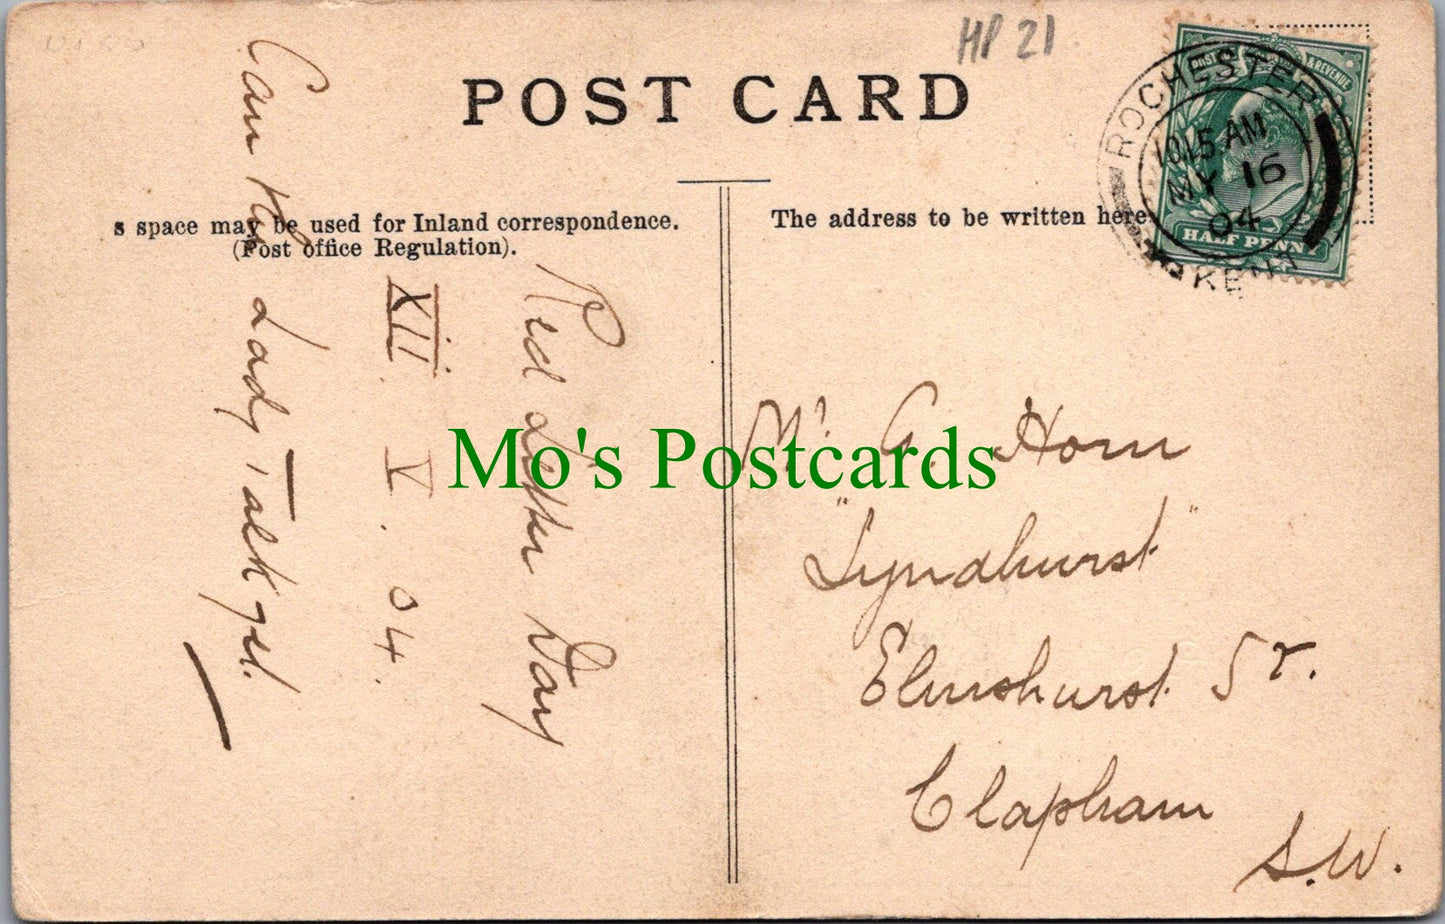 HP 21
POST CARD
s space may be used for Inland correspondence.
(Post office Regulation).
The address to be written here
POST & REVENUE
HALF PENNY
ROCHESTER
10.15 AM
MY 16
04
KENT
Red Letter Day
XII. V. 04.
Can the Lady Talk yet.
Mr G. Horn
"Lyndhurst"
Elmshurst St.
Clapham
S.W.
Mo's Postcards